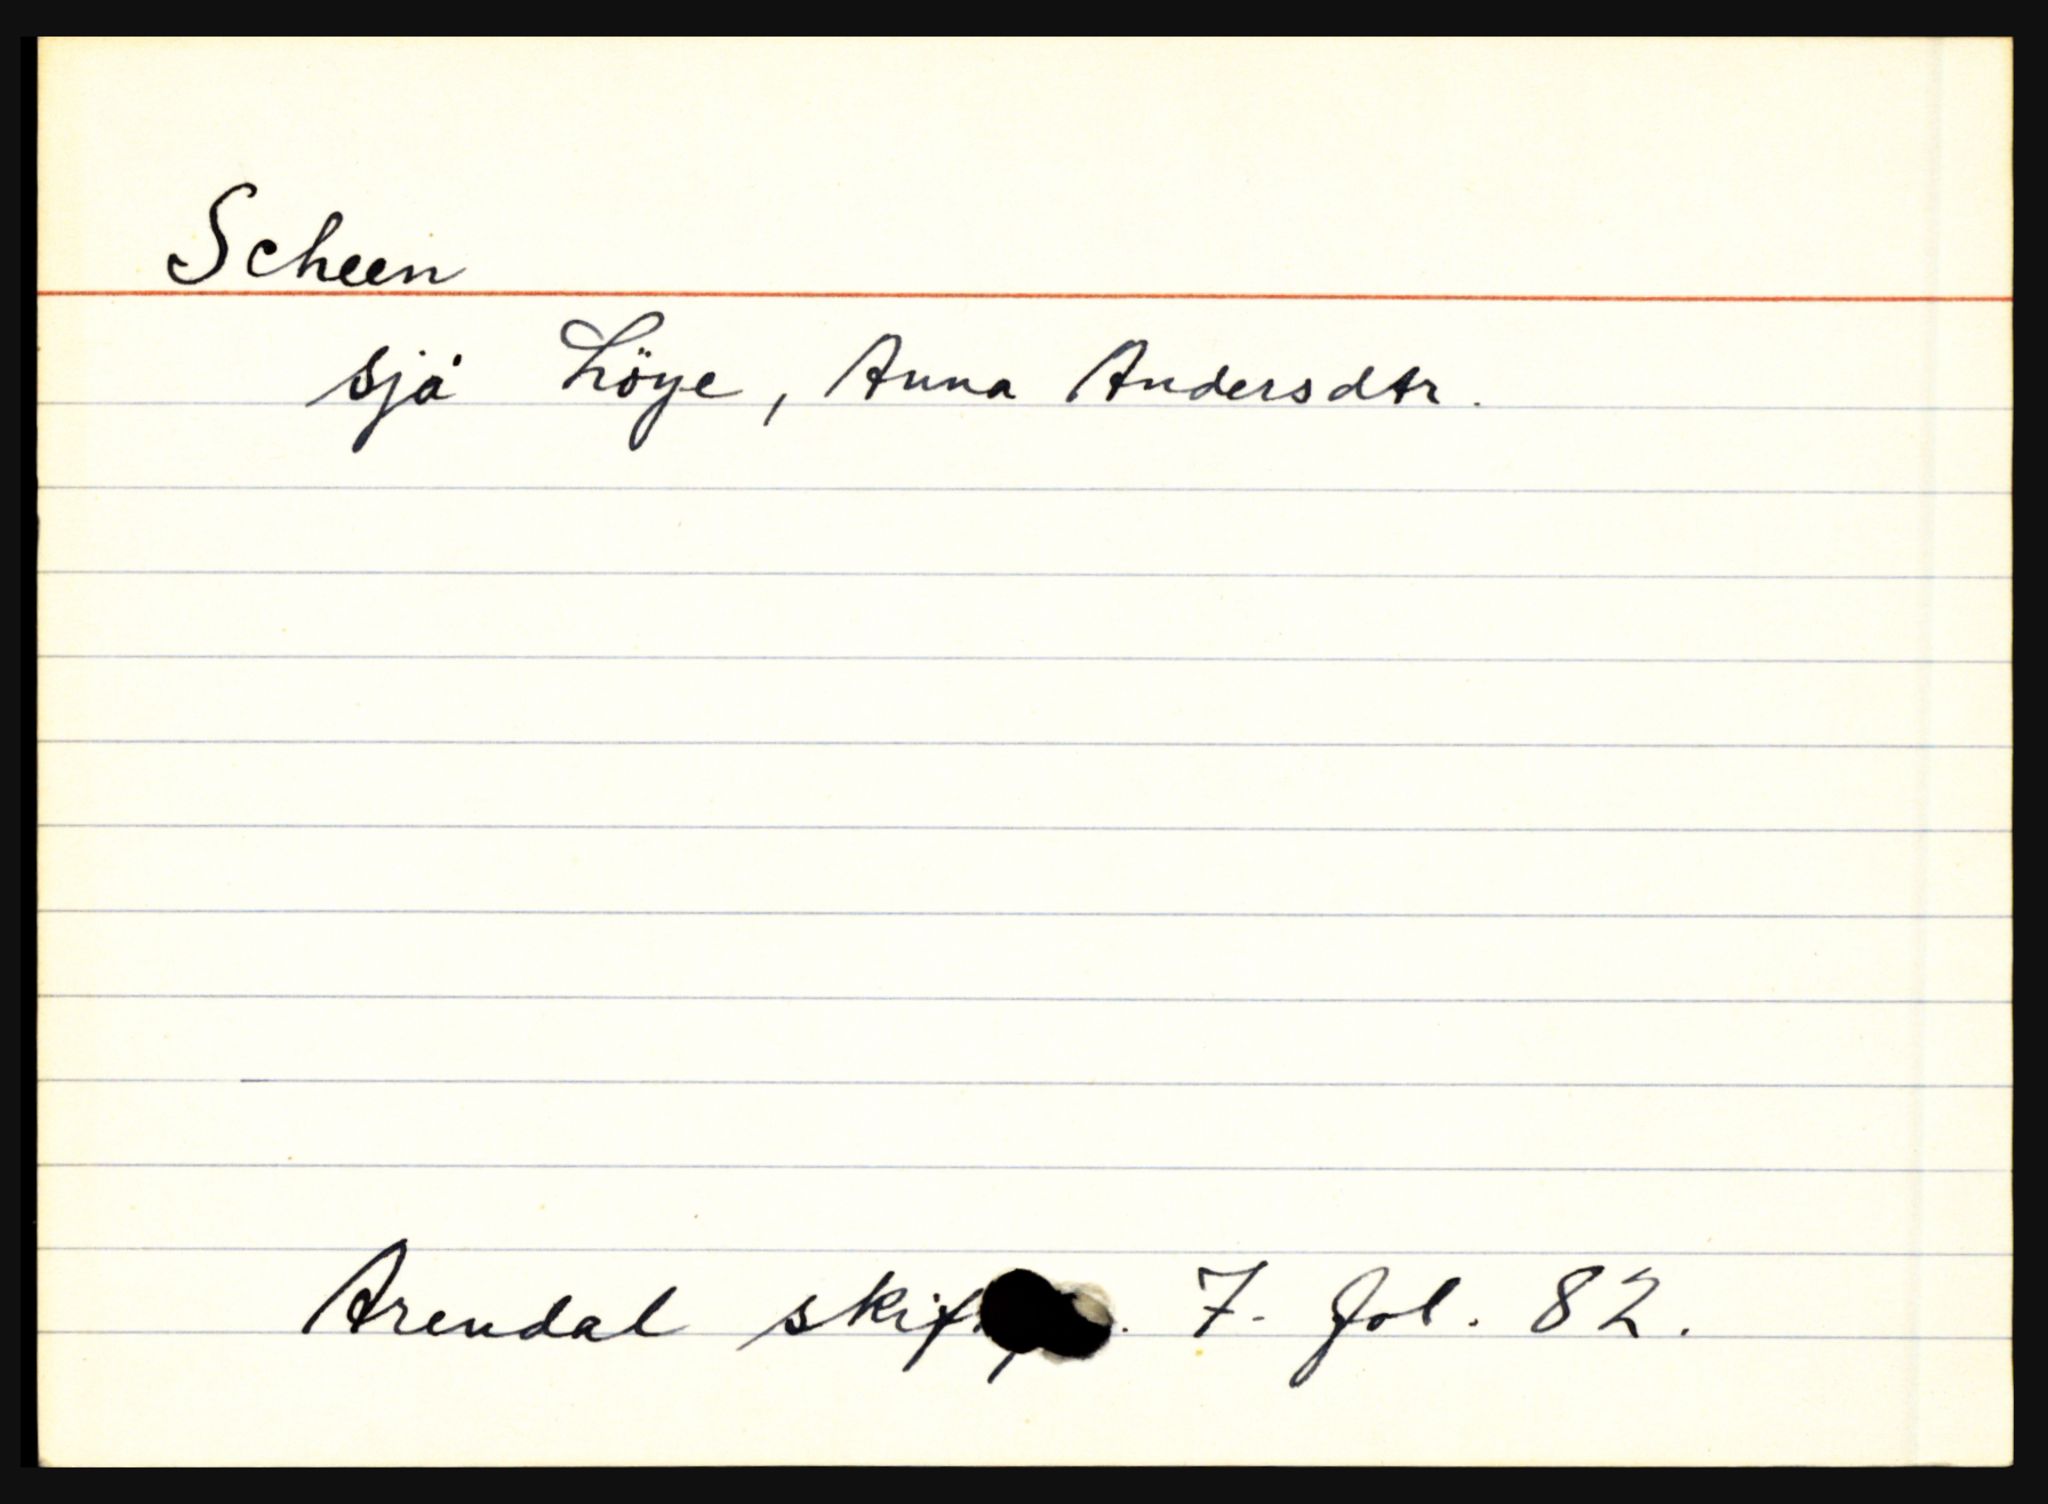 Scheen
sjå Löye, Anna Andersdtr.
Arendal 7. fol. 82.